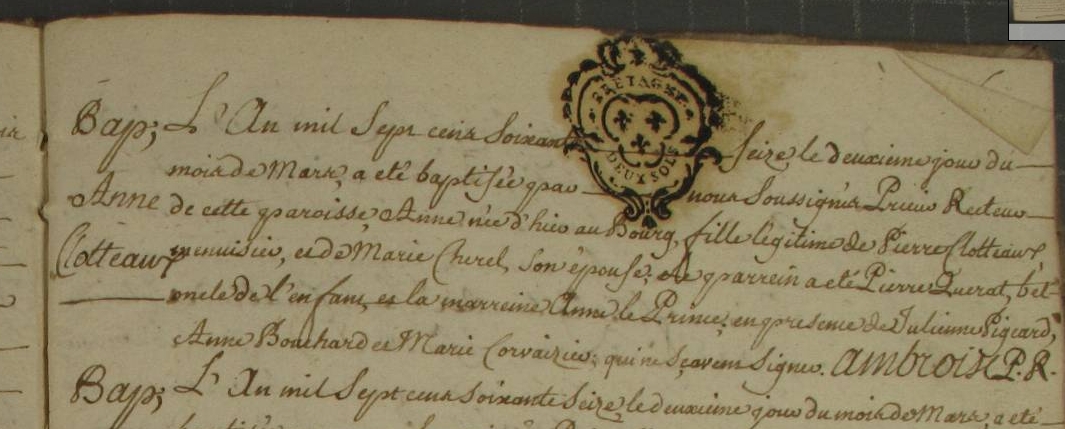 BRETAGNE
DEUX SOLS
Bap; L'An mil Sept cens Soixante Seize, le deuxieme jour du
mois de Mars, a eté baptisée par nous Soussigné Prieur Recteur
Anne de cette paroisse, Anne née d'hier au Bourg, fille légitime de Pierre Clotteaux
Clotteaux menuisier, et de Marie Cherel, son épouse; le parrein a eté Pierre Querat, bel-
oncle de l'enfant, et la marreine Anne le Prince; en presence de Julienne Pigeard,
Anne Bouchard et Marie Corvaizier; qui ne sçavent signer. ambroise P. R.
Bap; L'An mil Sept cens soixante Seize, le deuxieme jour du mois de Mars, a eté